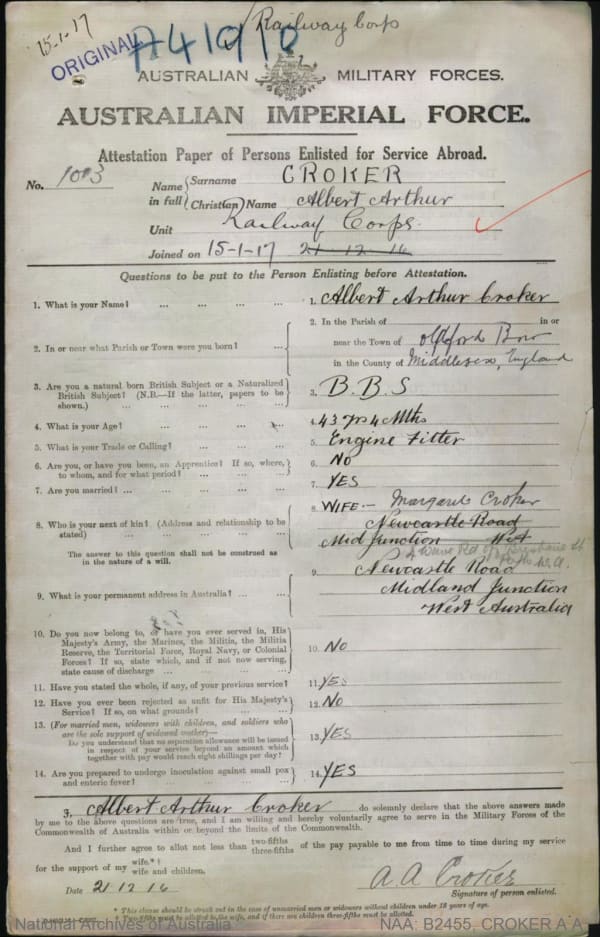 Railway Corps
15-1-17
ORIGINAL
A41910
AUSTRALIAN MILITARY FORCES.
AUSTRALIAN IMPERIAL FORCE.
Attestation Paper of Persons Enlisted for Service Abroad.
No. 1003
Name in full Surname CROKER
Christian Name Albert Arthur
Unit Railway Corps.
Joined on 15-1-17 21-12-16
Questions to be put to the Person Enlisting before Attestation.
1. What is your Name? ... ... ... ... 1. Albert Arthur Croker
2. In or near what Parish or Town were you born? ... 2. In the Parish of in or
near the Town of Oldford Bow
in the County of Middlesex, England
3. Are you a natural born British Subject or a Naturalized
British Subject? (N.B.—If the latter, papers to be
shown.) ... ... ... ... 3. B.B.S
4. What is your Age? ... ... 4. 43 yrs 4 Mths
5. What is your Trade or Calling? ... ... ... 5. Engine Fitter
6. Are you, or have you been, an Apprentice? If so, where,
to whom, and for what period? ... ... ... 6. NO
7. Are you married? ... ... ... ... ... 7. YES
8. Who is your next of kin? (Address and relationship to be
stated) ... ... ... ... 8. WIFE.- Margaret Croker
Newcastle Road
Mid Junction West
Perth W.A.
The answer to this question shall not be construed as
in the nature of a will.
9. What is your permanent address in Australia? ... ... 9. Newcastle Road
Midland Junction
West Australia
10. Do you now belong to, or have you ever served in, His
Majesty's Army, the Marines, the Militia, the Militia
Reserve, the Territorial Force, Royal Navy, or Colonial
Forces? If so, state which, and if not now serving,
state cause of discharge ... ... ... 10. NO
11. Have you stated the whole, if any, of your previous service? 11. YES
12. Have you ever been rejected as unfit for His Majesty's
Service? If so, on what grounds? ... ... ... 12. NO
13. (For married men, widowers with children, and soldiers who
are the sole support of widowed mother)—
Do you understand that no separation allowance will be issued
in respect of your service beyond an amount which
together with pay would reach eight shillings per day? ... 13. YES
14. Are you prepared to undergo inoculation against small pox
and enteric fever? ... ... ... ... 14. YES
I, Albert Arthur Croker do solemnly declare that the above answers made
by me to the above questions are true, and I am willing and hereby voluntarily agree to serve in the Military Forces of the
Commonwealth of Australia within or beyond the limits of the Commonwealth.
And I further agree to allot not less than two-fifths three-fifths of the pay payable to me from time to time during my service
for the support of my wife.*† wife and children.
Date 21 12 16
A. A Croker
Signature of person enlisted.
* This clause should be struck out in the case of unmarried men or widowers without children under 18 years of age.
† Two-fifths must be allotted to the wife, and if there are children three-fifths must be allotted.
National Archives of Australia
NAA: B2455, CROKER A A